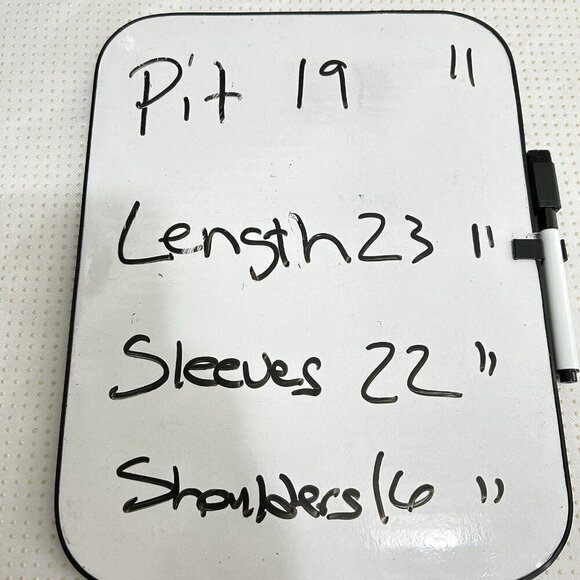 Pit 19 "
Length 23 "
Sleeves 22 "
Shoulders 16 "